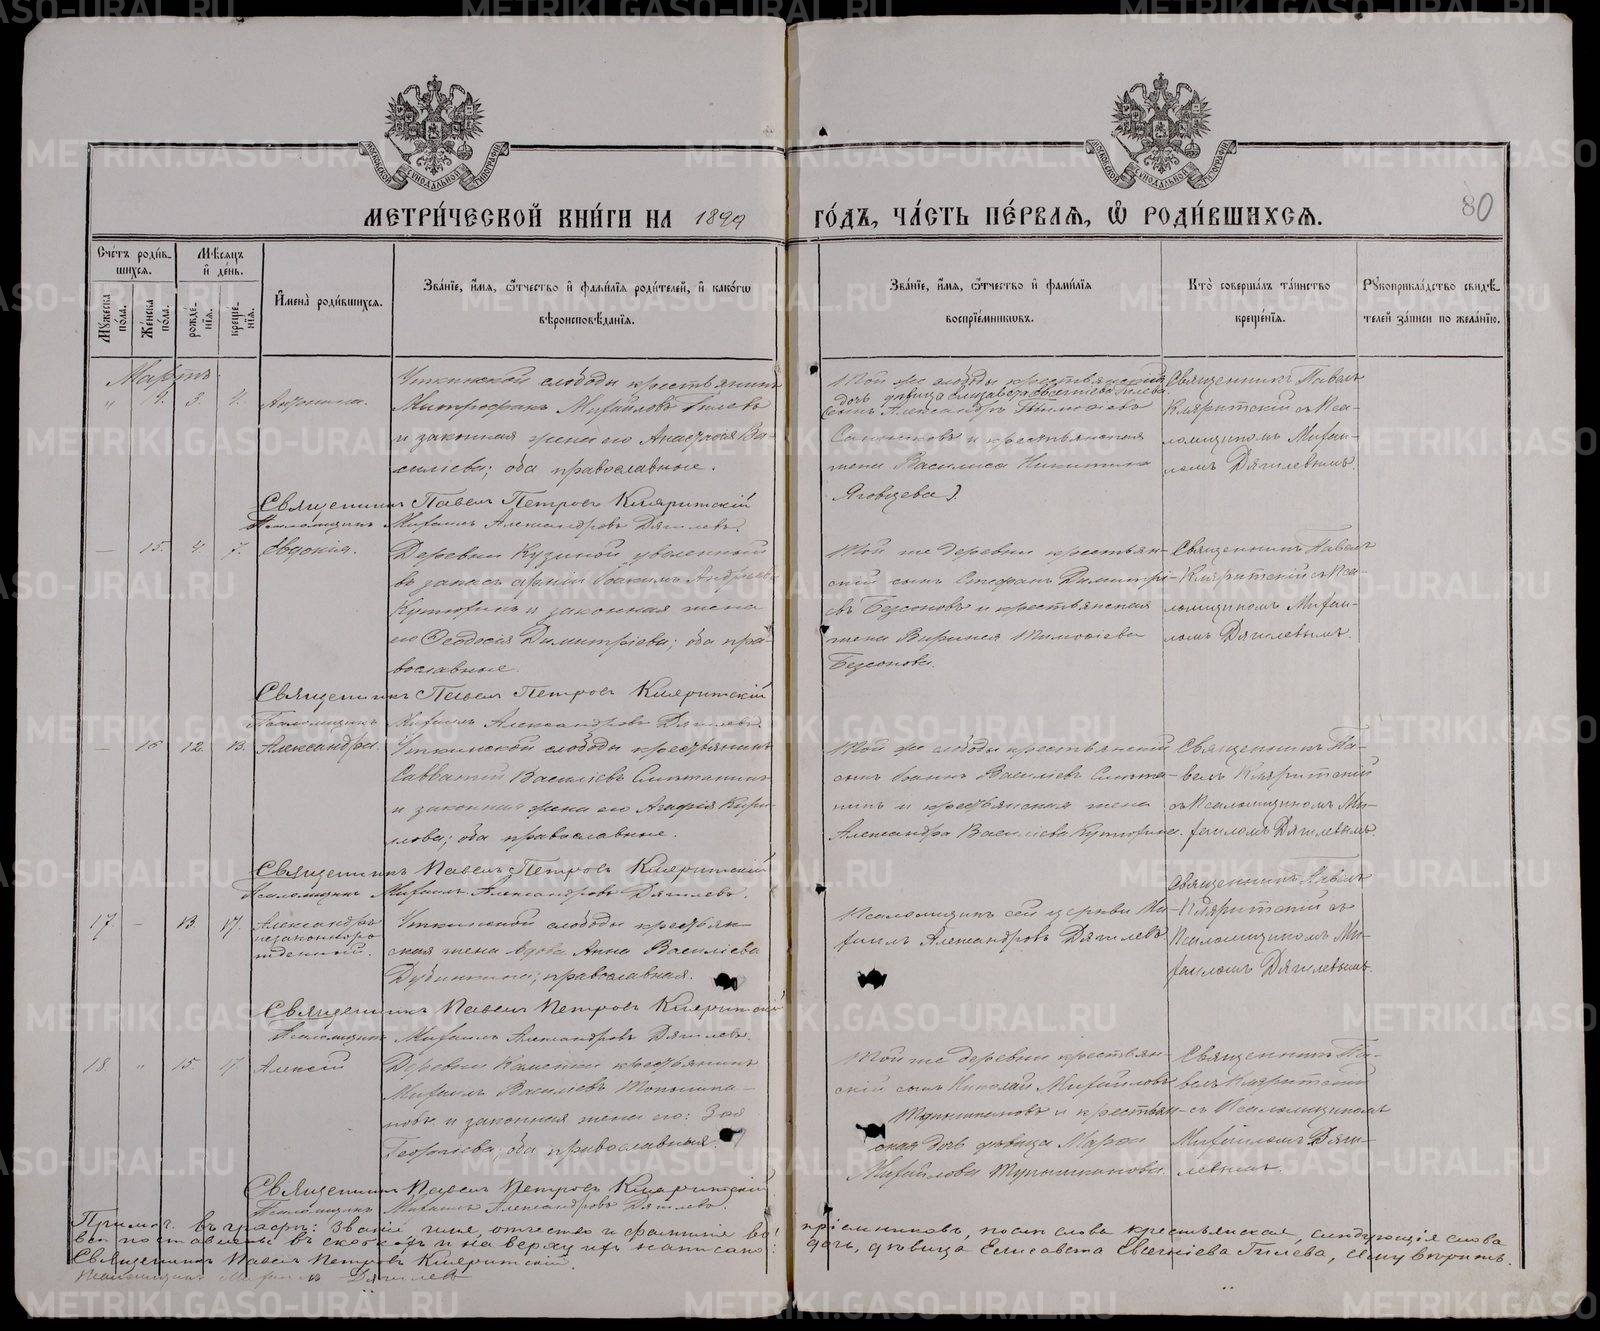 МЕТРИ́ЧЕСКОЙ КНИ́ГИ НА 1899
ГО́ДЪ, ЧА́СТЬ ПЕ́РВАѦ, Ѡ҆ РОДИ́ВШИХСѦ.
80
Сче́тъ роди́в-
шихсѧ.
Мѣ́сѧцъ
и҆ де́нь.
Мꙋ́жеска
по́ла.
Же́нска
по́ла.
рожде́-
нїѧ.
креще́-
нїѧ.
И҆мена̀ роди́вшихсѧ.
Зва́нїе, и҆́мѧ, ѻ҆́тчество и҆ фамı́лїѧ роди́телей, и҆ како́гѡ
вѣроисповѣ́данїѧ.
Зва́нїе, и҆́мѧ, ѻ҆́тчество и҆ фамı́лїѧ
воспрїе́мникѡвъ.
Кто̀ соверша́лъ та́инство
креще́нїѧ.
Рꙋкоприкла́дство свидѣ́-
телей за́писи по жела́нїю.
Мартъ.
" 14. 3. 4. Антонина.
Уткинской слободы крестьянинъ
Митрофанъ Михайловъ Гилевъ
и законная жена его Анастасія Ва-
силіева; оба православные.
Той же слободы крестьянскій
дочь дѣвица Елизавета Евсигніева Гилева
сынъ Александръ Тимоѳіевъ
и крестьянская
жена Василиса Никитина
Яговцева).
Священникъ Павелъ
Кляритскій съ Пса-
ломщикомъ Михаи-
ломъ Дягилевымъ.
Священникъ Павелъ Петровъ Кляритскій
Псаломщикъ Михаилъ Александровъ Дягилевъ.
— 15. 4. 7. Евдокія.
Деревни Кузиной уволенный
въ запасъ арміи Іоакимъ Андреевъ
Кутюхинъ и законная жена
его Ѳеодосія Димитріева; оба пра-
вославные.
Той же деревни крестьян-
скій сынъ Стефанъ Димитрі-
евъ Безсоновъ и крестьянская
жена Виринея Тимоѳіева
Безсонова.
Священникъ Павелъ
Кляритскій съ Пса-
ломщикомъ Михаи-
ломъ Дягилевымъ.
Священникъ Павелъ Петровъ Кляритскій
Псаломщикъ Михаилъ Александровъ Дягилевъ.
— 16 12. 13. Александра.
Уткинской слободы крестьянинъ
Савватій Василіевъ Сметанинъ
и законная жена его Агафія Кири-
лова; оба православные.
Той же слободы крестьянскій
сынъ Іоаннъ Василіевъ Смета-
нинъ и крестьянская жена
Александра Василіева Кутюхина.
Священникъ Па-
велъ Кляритскій
съ Псаломщикомъ Ми-
хаиломъ Дягилевымъ.
Священникъ Павелъ Петровъ Кляритскій
Псаломщикъ Михаилъ Александровъ Дягилевъ.
17. — 13. 17. Александръ
незаконноро-
жденный.
Уткинской слободы крестьян-
ская жена вдова Анна Василіева
Дубинкина; православная.
Псаломщикъ сей церкви Ми-
хаилъ Александровъ Дягилевъ
Священникъ Павелъ
Кляритскій съ
Псаломщикомъ Ми-
хаиломъ Дягилевымъ.
Священникъ Павелъ Петровъ Кляритскій
Псаломщикъ Михаилъ Александровъ Дягилевъ.
18 " 15. 17. Алексій
Деревни Каменки крестьянинъ
Михаилъ Василіевъ Топышка-
новъ и законная жена его: Зоя
Георгіева; оба православныя.
Той же деревни крестьян-
скій сынъ Николай Михайловъ
Топышкановъ и крестьян-
ская дочь дѣвица Марѳа
Михайлова Топышканова.
Священникъ Па-
велъ Кляритскій
съ Псаломщикомъ
Михаиломъ Дяги-
левымъ.
Священникъ Павелъ Петровъ Кляритскій
Псаломщикъ Михаилъ Александровъ Дягилевъ.
Примѣч. въ графѣ: Званіе имя отчество и фамилія вос-
пріемниковъ, послѣ слова крестьянская, слѣдующія слова
всѣ поставлены въ скобкахъ и на верху ихъ написано:
дочь, дѣвица Елисавета Евсигніева Гилева, сему вѣрить.
Священникъ Павелъ Петровъ Кляритскій.
Псаломщикъ Михаилъ Дягилевъ
METRIKI.GASO-URAL.RU